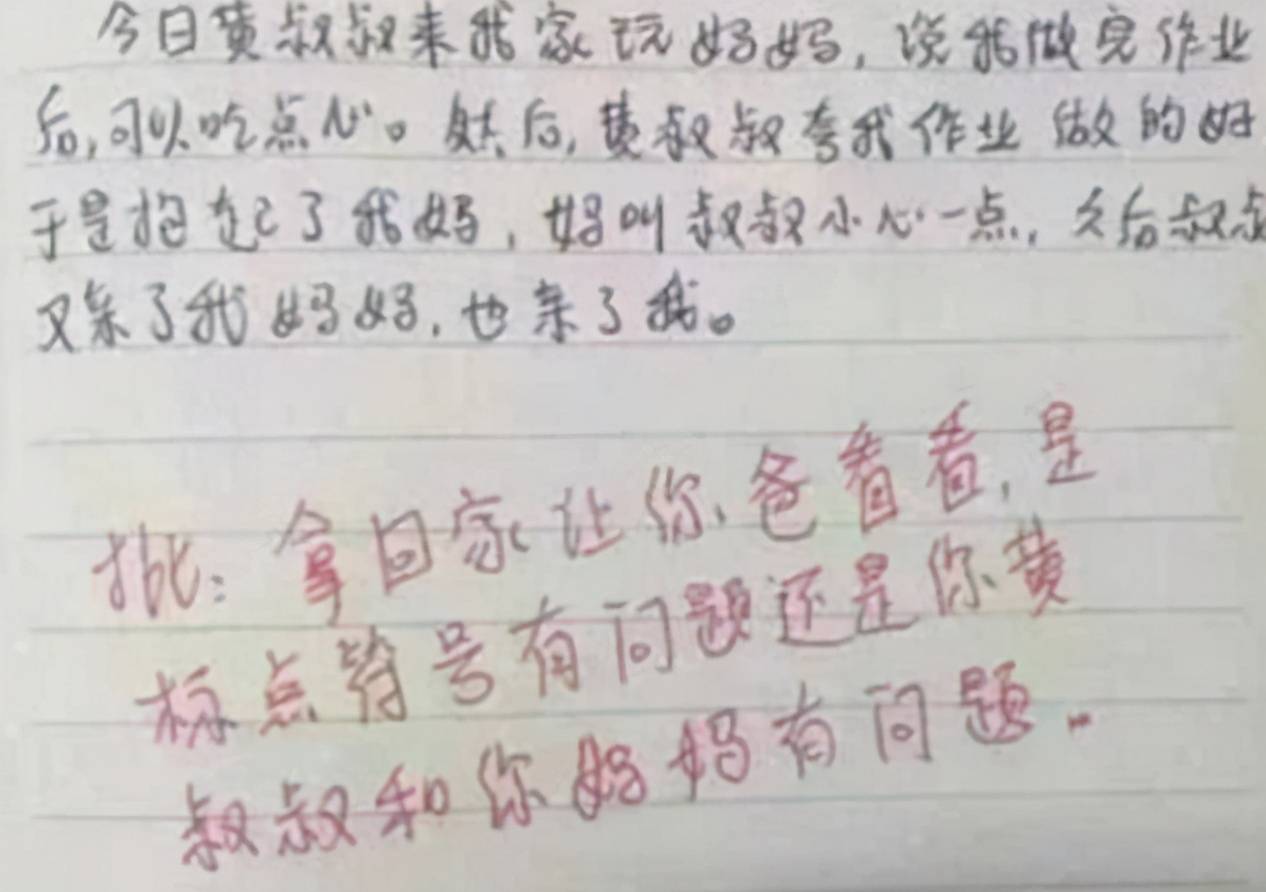 今日黄叔叔来我家玩妈妈,说我做完作业
后,可以吃点心。然后,黄叔叔夸我作业做的好
于是抱起了我妈,妈叫叔叔小心一点,久后叔叔
又亲了我妈妈,也亲了我。
批:拿回家让你爸看看,是
标点符号有问题还是你黄
叔叔和你妈妈有问题..